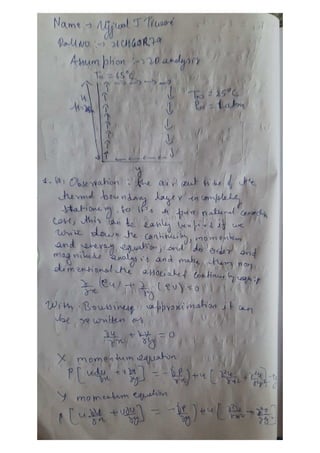 Name → Ujjwal J Tiwari
Roll No :→
Assumption :→ 2D analysis
= 65°C
T∞ = 25°C
P∞ = 1 atm
H
y
1. (a) Observation : the air out side of the
thermal boundary layer is completely
stationary. so it is a pure natural convection
case, this can be easily if we
write down the continuity, momentum
and energy equation, and do order and
magnitude analysis and make them non
dimensional the associated continuity eqn is
∂/∂x (ρu) + ∂/∂y (ρv) = 0
With Boussinesq approximation it can
be rewritten as
∂u/∂x + ∂v/∂y = 0
X momentum equation
ρ[u ∂u/∂x + v ∂u/∂y] = -∂P/∂x + μ[∂²u/∂x² + ∂²u/∂y²] - ρg
Y momentum equation
ρ[u ∂v/∂x + v ∂v/∂y] = -∂P/∂y + μ[∂²v/∂x² + ∂²v/∂y²]